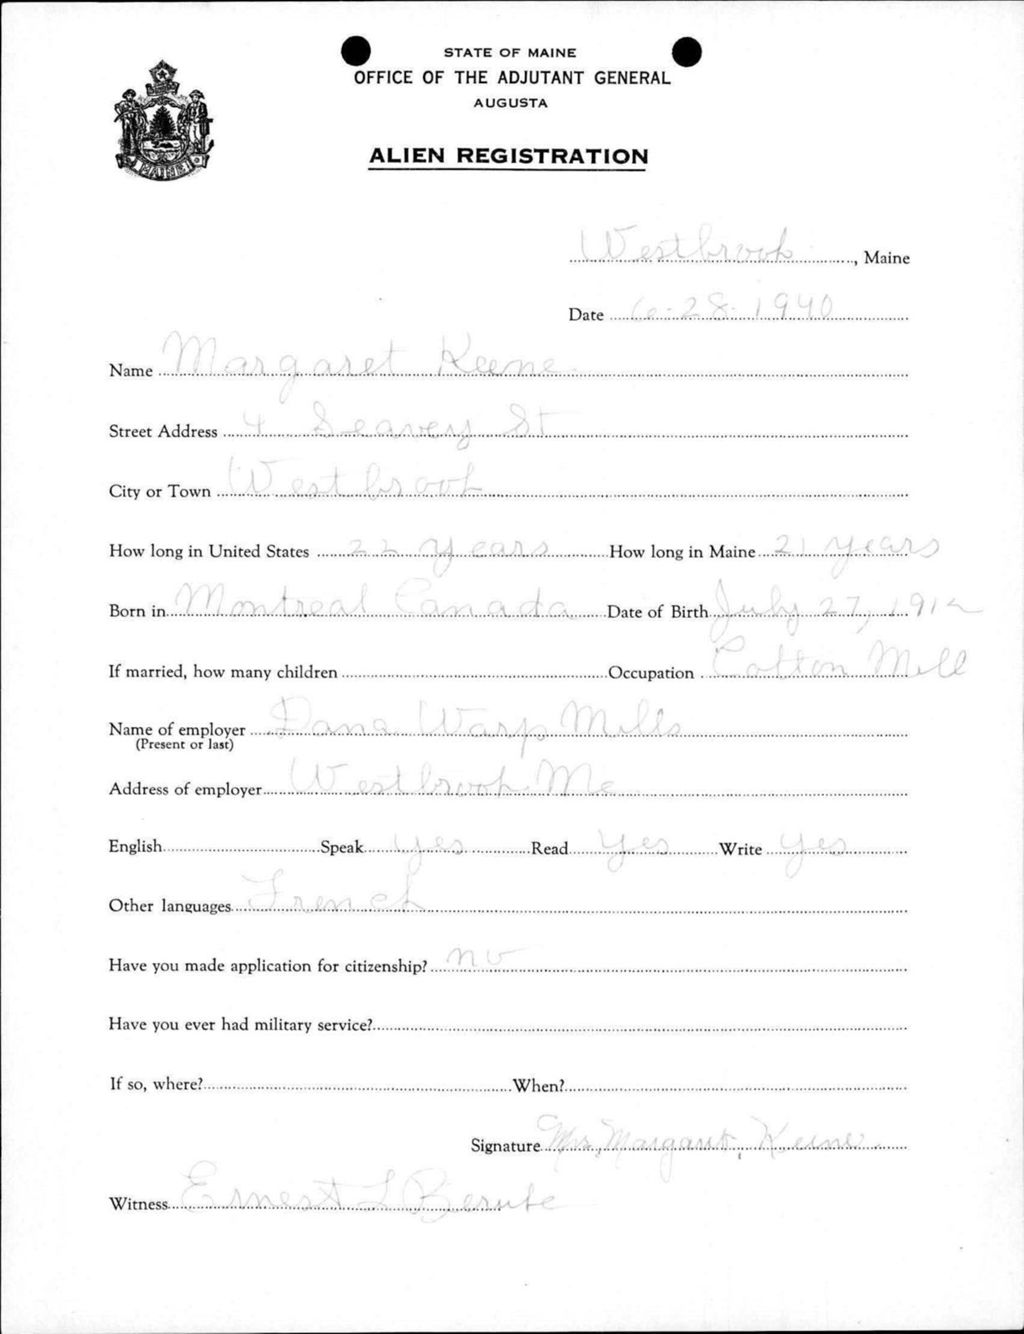 STATE OF MAINE
OFFICE OF THE ADJUTANT GENERAL
AUGUSTA
ALIEN REGISTRATION
MAINE
Westbrook, Maine
Date 6-28-1940
Name Margaret Keene
Street Address 4 Seavey St
City or Town Westbrook
How long in United States 22 years How long in Maine 21 years
Born in Montreal Canada Date of Birth July 27, 1912
If married, how many children Occupation Cotton Mill
Name of employer Dana Warp Mills
(Present or last)
Address of employer Westbrook Me
English Speak Yes Read Yes Write Yes
Other languages French
Have you made application for citizenship? no
Have you ever had military service?
If so, where? When?
Signature Mrs, Margaret, Keene
Witness Ernest L